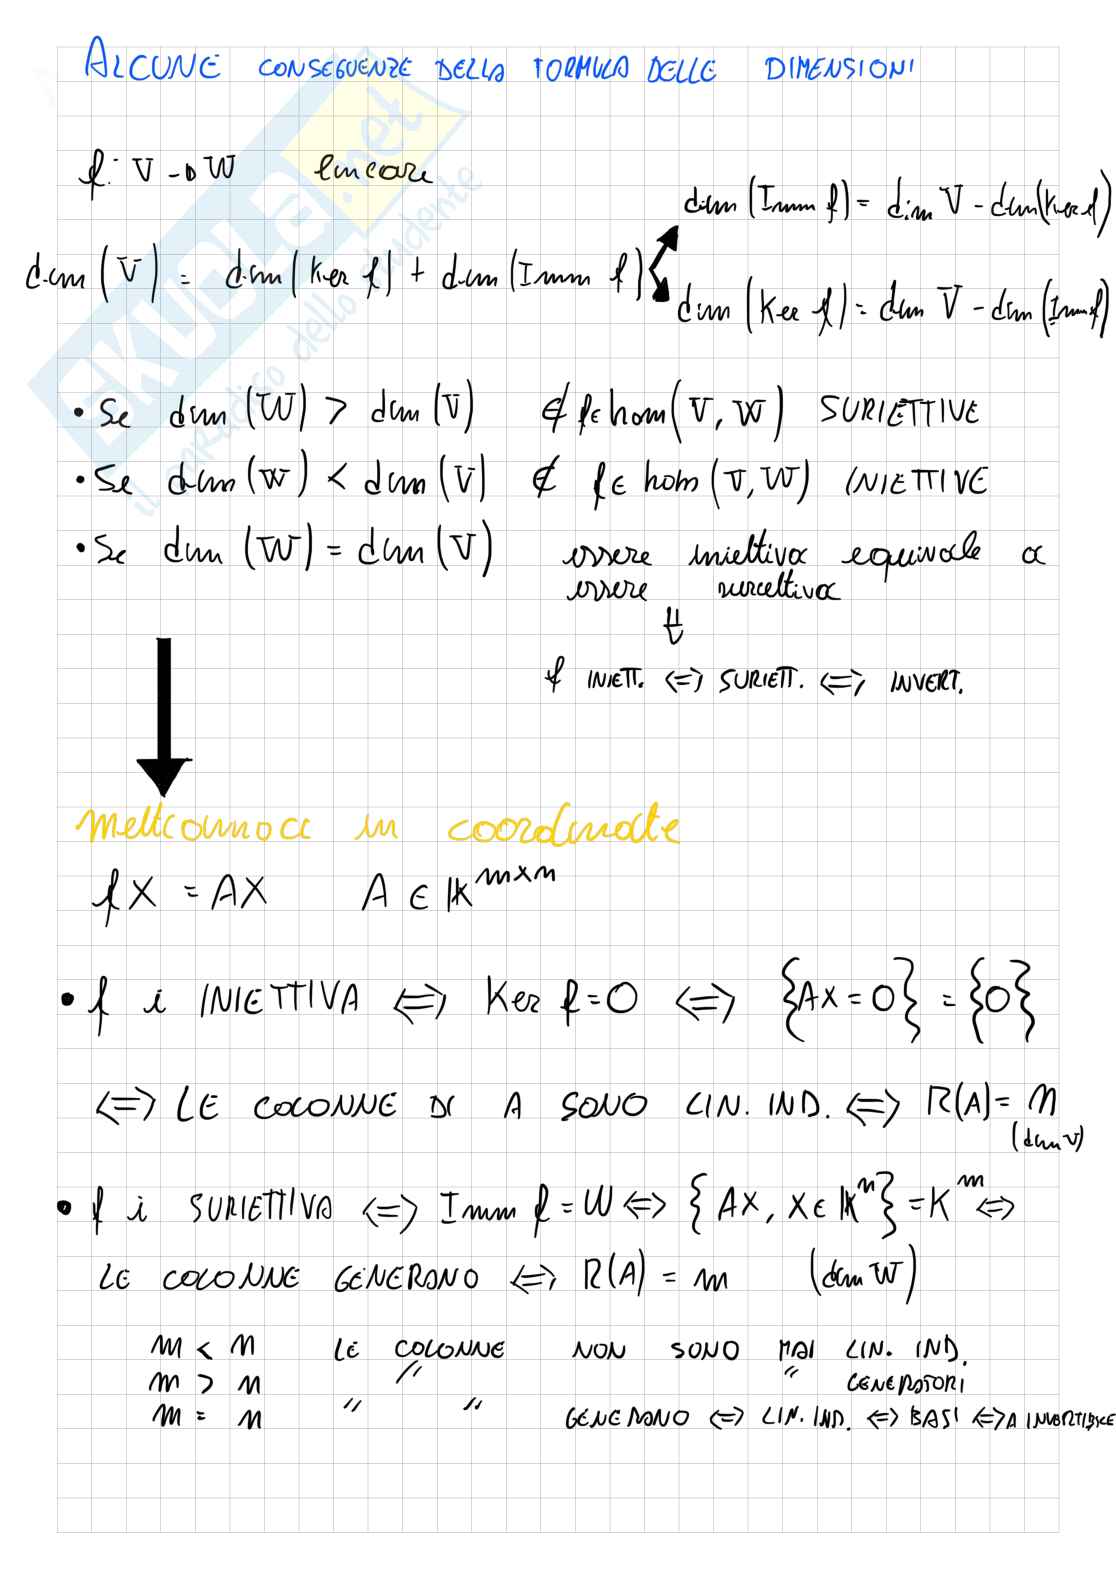 ALCUNE CONSEGUENZE DELLA FORMULA DELLE DIMENSIONI
f: V → W lineare
dim (Imm f) = dim V - dim (Ker f)
dim (V) = dim (Ker f) + dim (Imm f)
dim (Ker f) = dim V - dim (Imm f)
• Se dim (W) > dim (V) ∄ f ∈ hom (V, W) SURIETTIVE
• Se dim (W) < dim (V) ∄ f ∈ hom (V, W) INIETTIVE
• Se dim (W) = dim (V) essere iniettiva equivale a
essere suriettiva
f INIETT. <=> SURIETT. <=> INVERT.
mettiamoci in coordinate
f X = AX A ∈ K^{m×n}
• f è INIETTIVA <=> Ker f = 0 <=> {AX = 0} = {0}
<=> LE COLONNE DI A SONO LIN. IND. <=> R(A) = n
(dim V)
• f è SURIETTIVA <=> Imm f = W <=> {AX, X ∈ K^n} = K^m <=>
LE COLONNE GENERANO <=> R(A) = m (dim W)
m < n LE COLONNE NON SONO MAI LIN. IND.
m > n " " GENERATORI
m = n " " GENERANO <=> LIN. IND. <=> BASI <=> A INVERTIBILE
SKUOLA.net
il paradiso dello studente